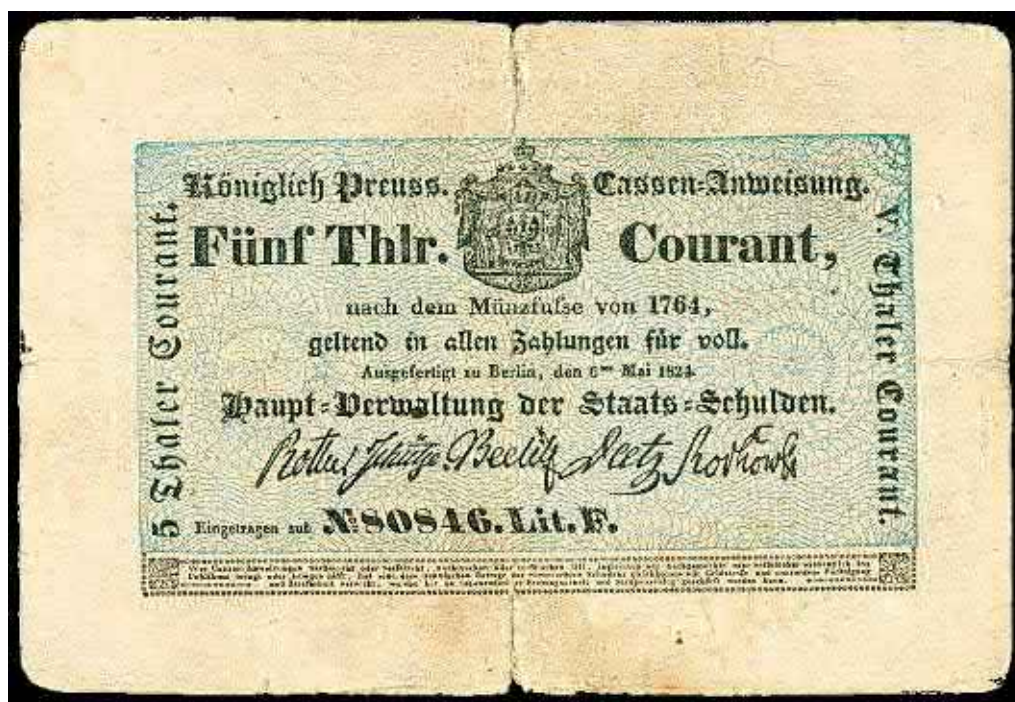 Königlich Preuss. Cassen-Anweisung.
Fünf Thlr. Courant,
nach dem Münzfuſse von 1764,
geltend in allen Zahlungen für voll.
Ausgefertigt zu Berlin, den 6ten Mai 1824.
Haupt-Verwaltung der Staats-Schulden.
Rother Schütze Beelitz Deetz Rochow
Eingetragen sub № 80846. Lit. F.
5 Thaler Courant.
V. Thaler Courant.